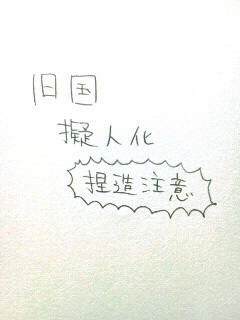 旧国
擬人化
捏造注意